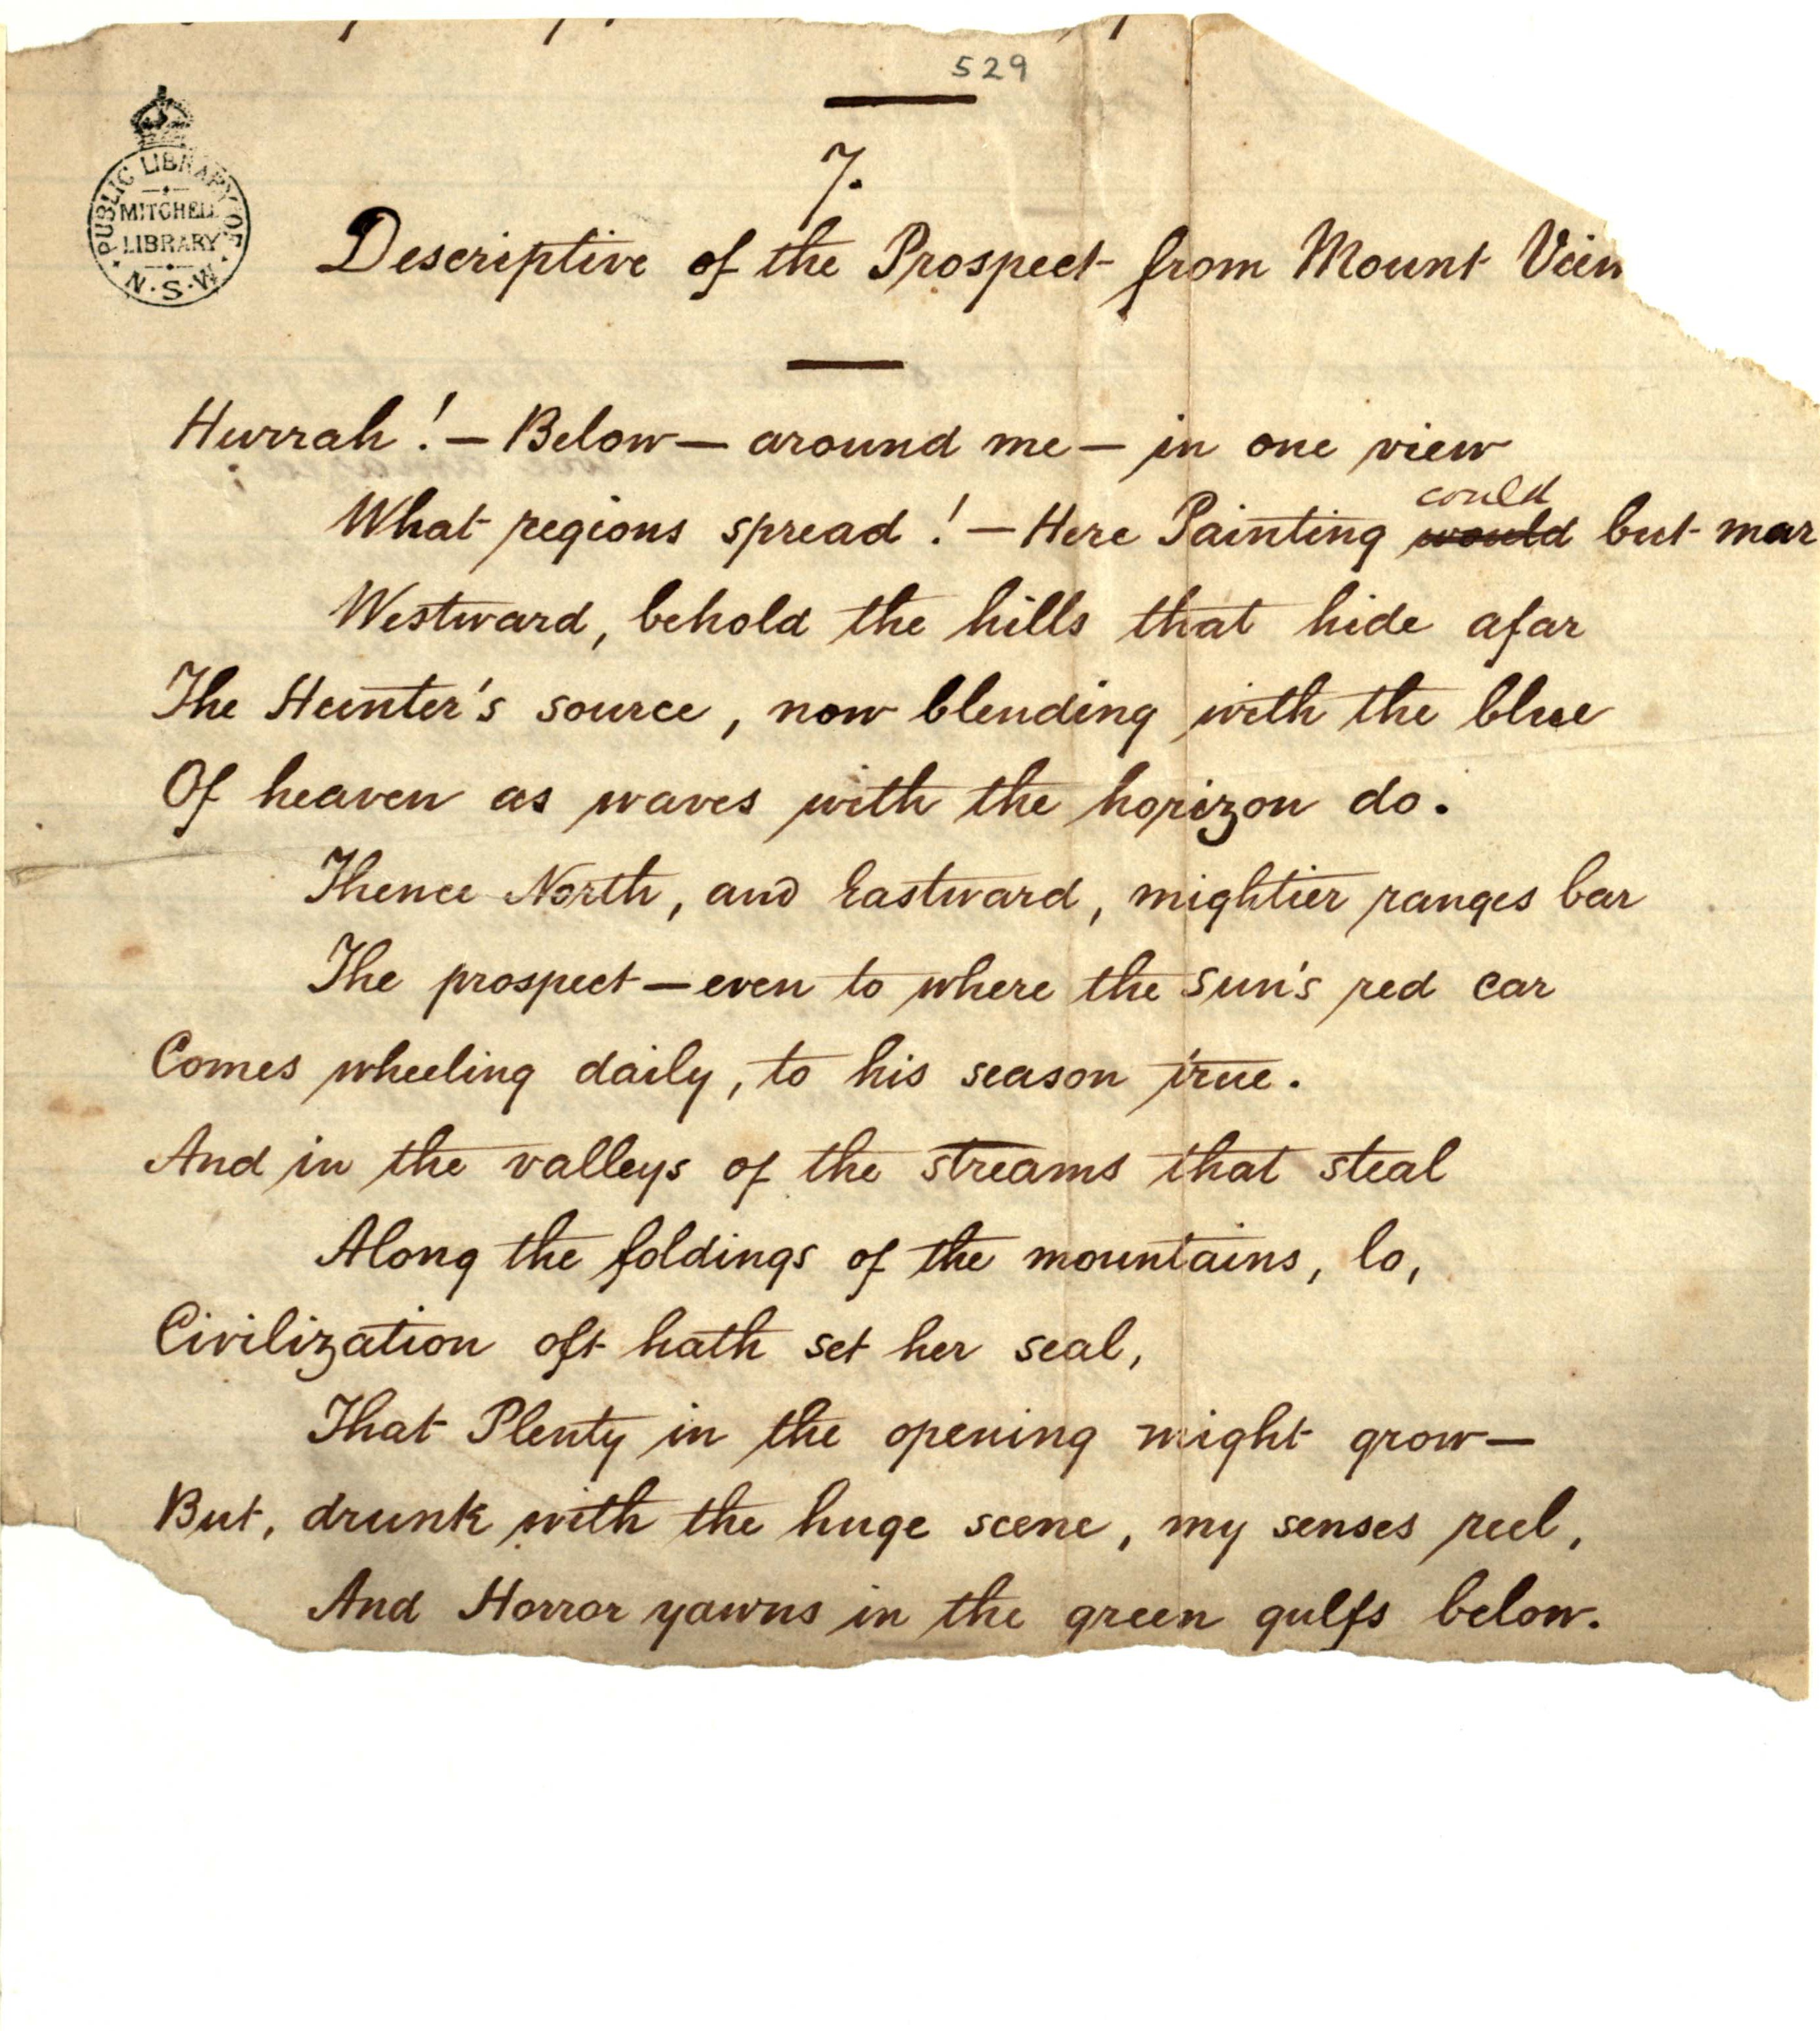 529
PUBLIC LIBRARY OF
MITCHELL
LIBRARY
N.S.W
7.
Descriptive of the Prospect from Mount View
Hurrah! — Below — around me — in one view
could
What regions spread! — Here Painting would but mar
Westward, behold the hills that hide afar
The Hunter's source, now blending with the blue
Of heaven as waves with the horizon do.
Thence North, and Eastward, mightier ranges bar
The prospect — even to where the sun's red car
Comes wheeling daily, to his season true.
And in the valleys of the streams that steal
Along the foldings of the mountains, lo,
Civilization oft hath set her seal,
That Plenty in the opening might grow —
But, drunk with the huge scene, my senses reel,
And Horror yawns in the green gulfs below.